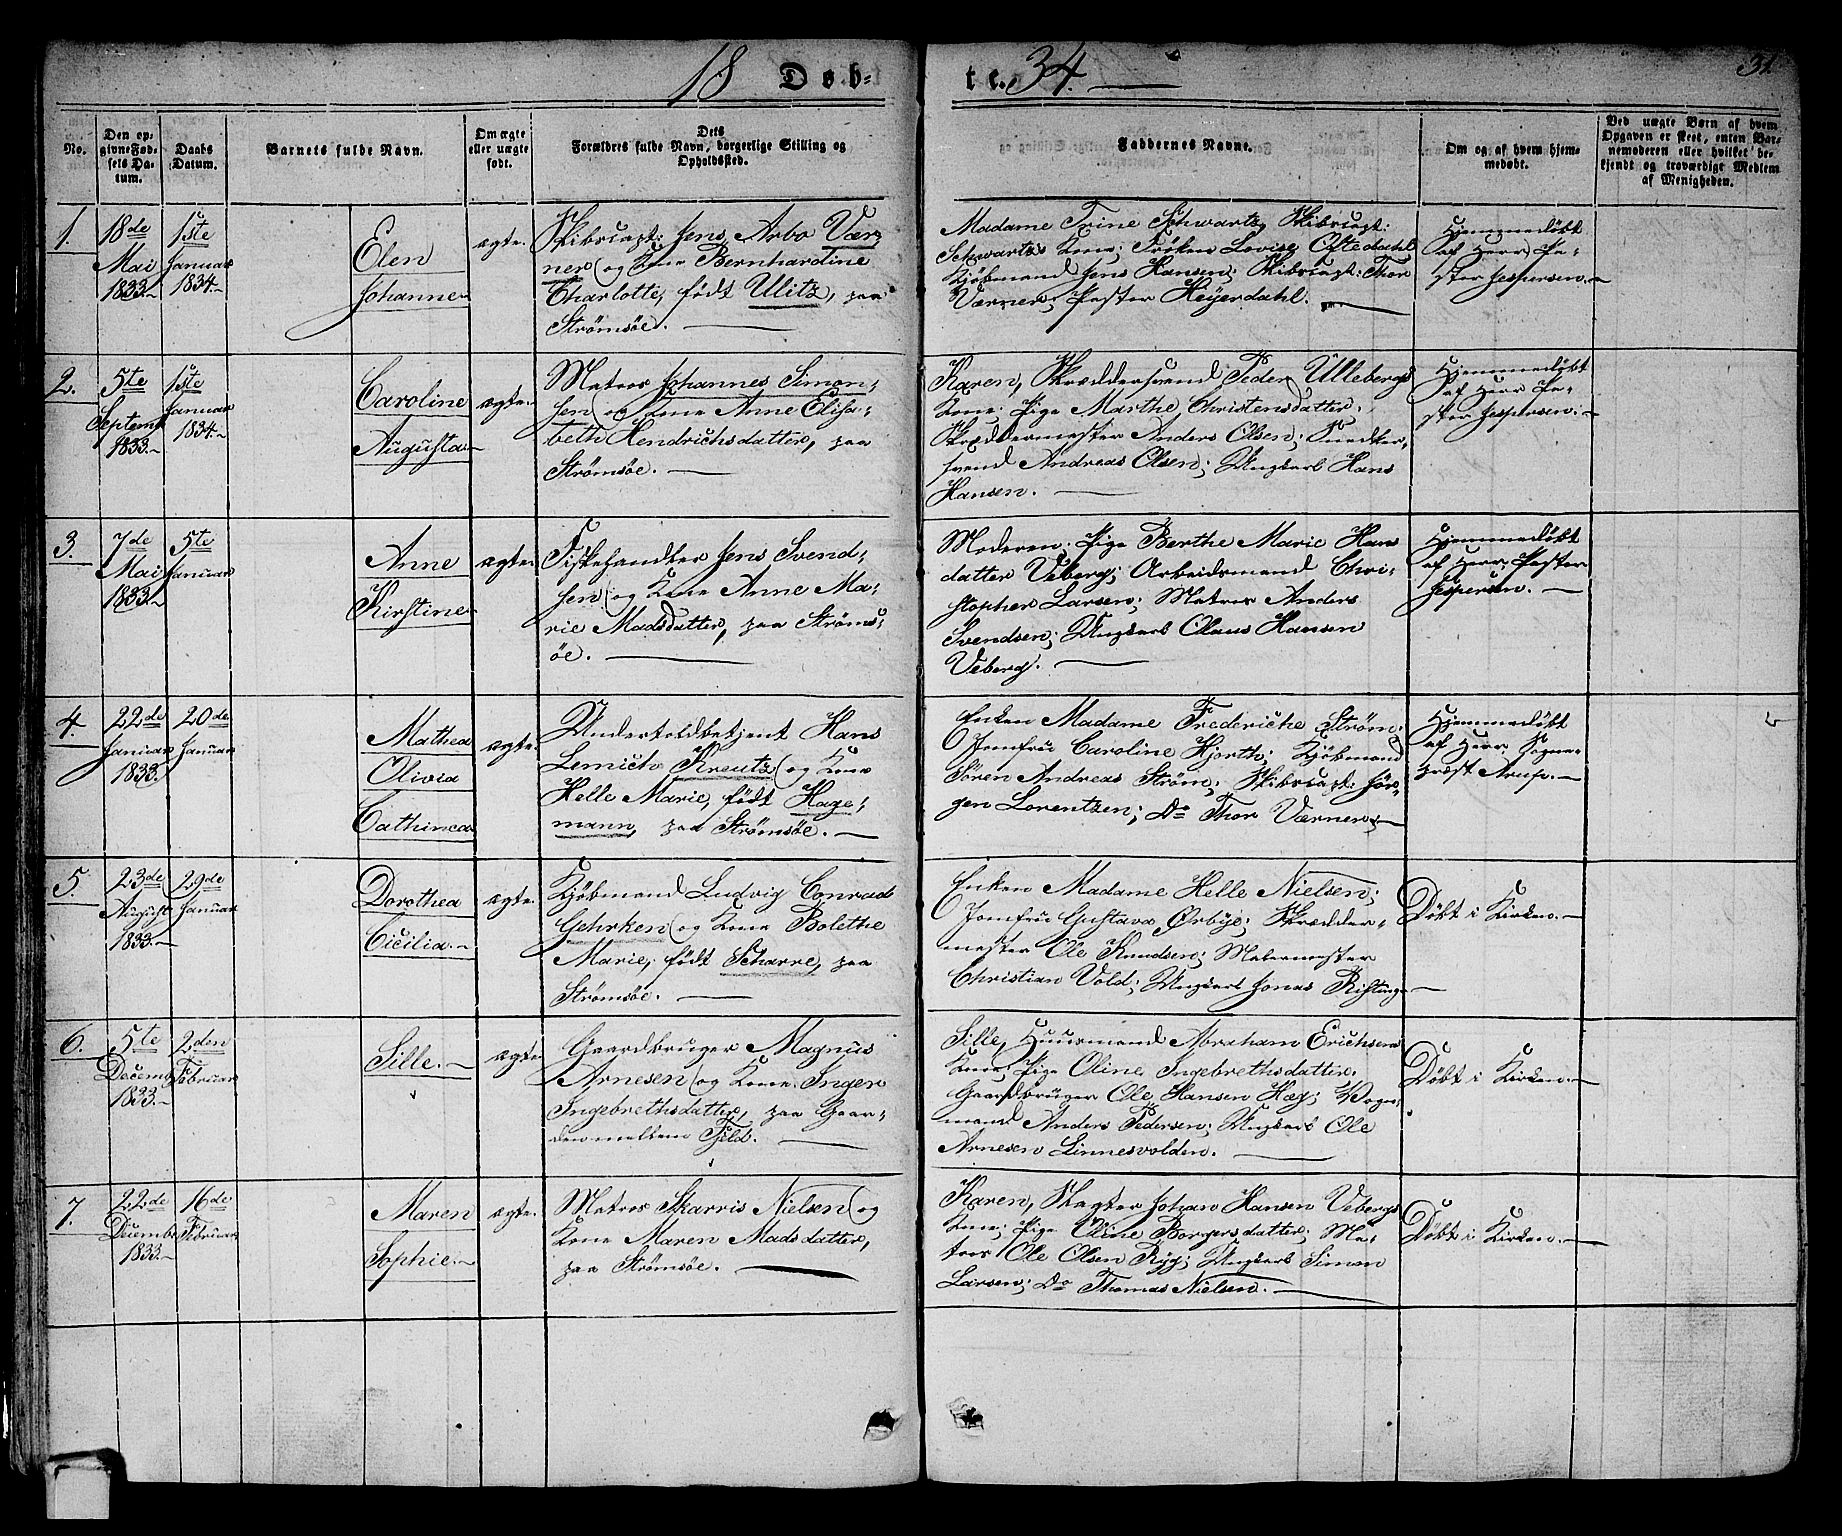 18 Døb-
te. 34.
31
No.
Den op-
givne Fød-
sels Da-
tum.
Daabs
Datum.
Barnets fulde Navn.
Om ægte
eller uægte
født.
Dets
Forældres fulde Navn, borgerlige Stilling og
Opholdssted.
Faddernes Navne.
Om og af hvem hjem-
medøbt.
Ved uægte Børn af hvem
Opgaven er skeet, enten Bar-
nemoderen eller hvilket be-
kjendt og troværdigt Medlem
af Menigheden.
1.
18de
Mai
1833.
1ste
Januar
1834.
Elen
Johanne
ægte.
Skibscapt: Jens Arbo Vær-
ner og Kone Bernhardine
Charlotte, født Ulitz, paa
Strømsøe.
Madame Trine Schwartz, Skibscapt:
Schwartz Kone; Frøken Lovise Oftedahl
Kjøbmand Jens Hansen; Skibscapt: Thor
Værner; Pastor Heyerdahl.
Hjemmedøbt
af Herr Pa-
stor Jespersen.
2.
5te
Septemb
1833.
1ste
Januar
1834.
Caroline
Augusta
ægte.
Matros Johannes Simon-
sen og Kone Anne Elisa-
beth Hendrichsdatter, paa
Strømsøe.
Karen, Skræddersvend Peder Ullebergs
Kone; Pige Marthe Christensdatter.
Skræddermester Anders Olsen; Snedker-
svend Andreas Olsen; Ungkarl Hans
Hansen.
Hjemmedøbt
af Herr Pa-
stor Jespersen.
3.
7de
Mai
1833.
5te
Januar
Anne
Kirstine
ægte.
Fiskehandler Jens Svend-
sen og Kone Anne Ma-
rie Madsdatter, paa Strøms-
øe.
Moderen; Pige Berthe Marie Hans
datter Veberg; Arbeidsmand Chri-
stopher Larsen; Matros Anders
Svendsen; Ungkarl Olaus Hansen
Veberg.
Hjemmedøbt
af Herr Pastor
Jespersen.
4.
22de
Januar
1833.
20de
Januar
Mathea
Olivia
Cathinca
ægte.
Undertoldbetjent Hans
Lemich Kreutz og Kone
Helle Marie, født Hage-
mann, paa Strømsøe.
Enken Madame Frederiche Strøm;
Jomfru Caroline Hjorth; Kjøbmand
Søren Andreas Strøm; Skibscapt: Jør-
gen Lorentzen; Do Thor Værner
Hjemmedøbt
af Herr Sogne-
præst Arup.
5.
23de
August
1833.
29de
Januar
Dorothea
Cicilia.
ægte.
Kjøbmand Ludvig Conrad
Gehrken og Kone Bolethe
Marie, født Scharre, paa
Strømsøe.
Enken Madame Helle Nielsen;
Jomfru Gustava Ørbye; Skrædder-
mester Ole Knudsen; Malermester
Christian Vold; Ungkarl Jonas
Døbt i Kirken.
6.
5te
Decemb
1833.
2den
Februar
Sille.
ægte.
Gaardbruger Magnus
Arnesen og Kone Inger
Ingebrethsdatter, paa Gaar-
den mellem Fjeld.
Sille, Huusmand Abraham Erichsens
Kone; Pige Oline Ingebrethsdatter.
Gaardbruger Ole Hansen Hæg; Vogn-
mand Anders Pedersen; Ungkarl Ole
Arnesen Linnesvolden.
Døbt i Kirken.
7.
22de
Decemb
1833.
16de
Februar
Maren
Sophie.
ægte.
Matros Skarris Nielsen og
Kone Maren Madsdatter,
paa Strømsøe.
Karen, Slagter Johan Hansen Vebergs
Kone; Pige Oline Borgersdatter; Ma-
tros Ole Olsen Ryg; Ungkarl Simon
Larsen; Do Thomas Nielsen.
Døbt i Kirken.